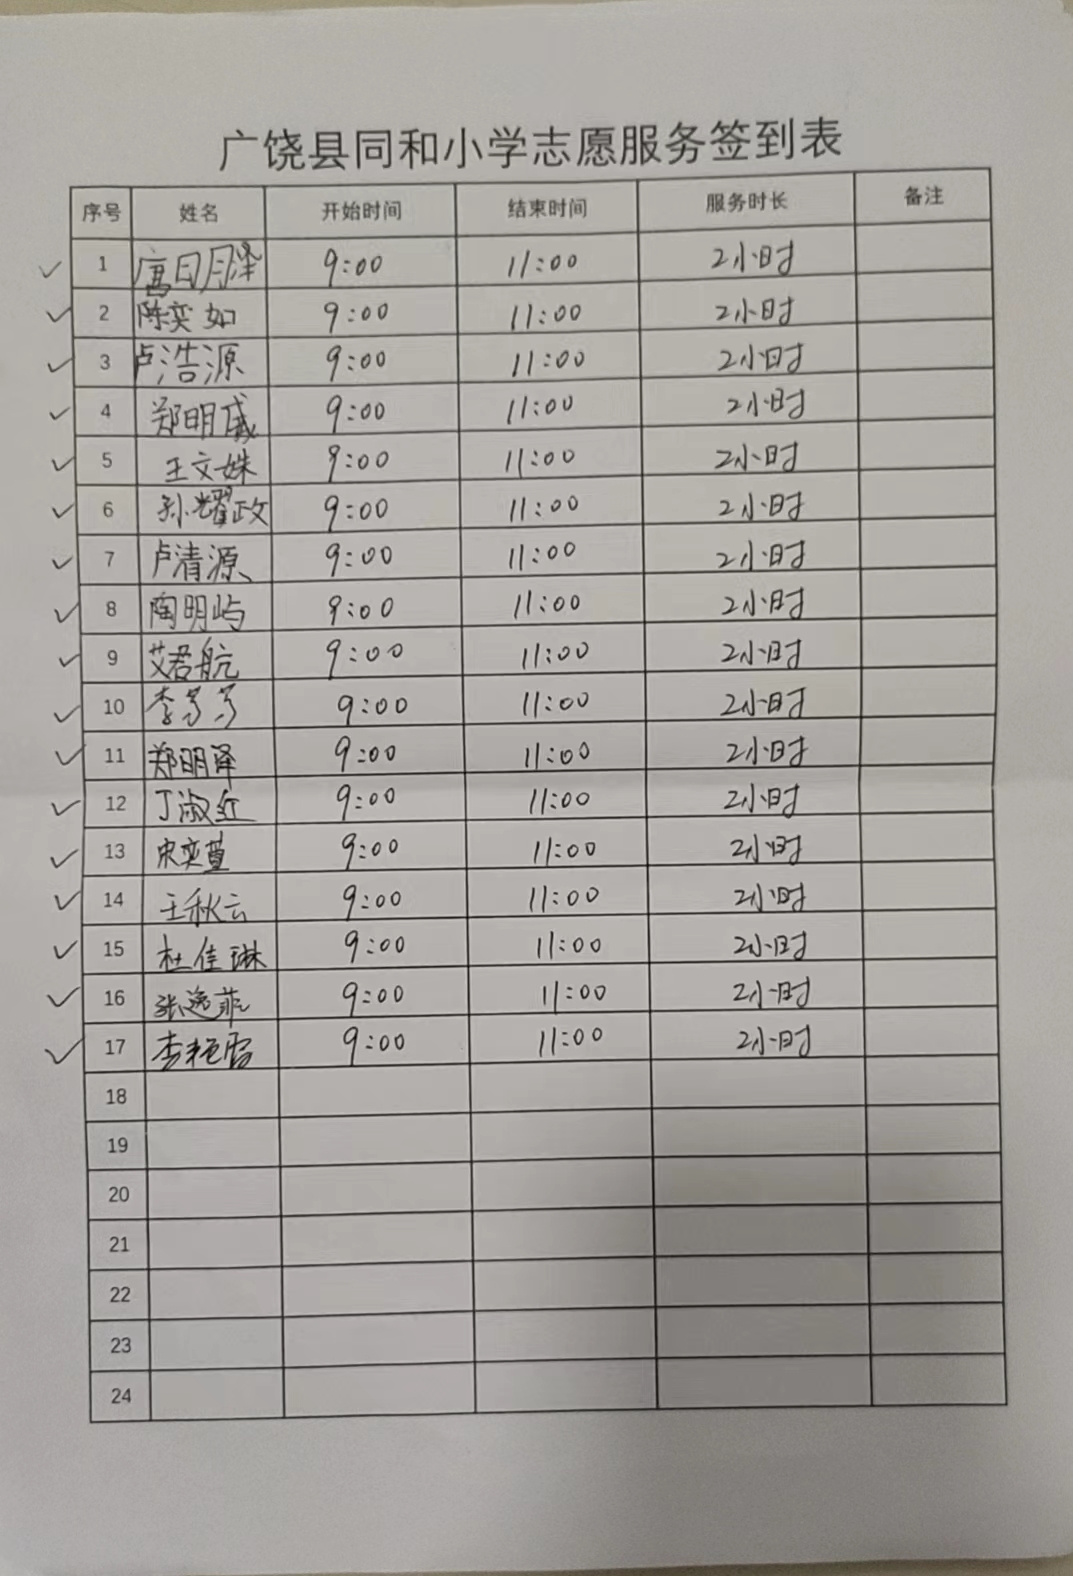 广饶县同和小学志愿服务签到表
序号 姓名 开始时间 结束时间 服务时长 备注
1 9:00 11:00 2小时
2 陈奕如 9:00 11:00 2小时
3 卢浩源 9:00 11:00 2小时
4 郑明 9:00 11:00 2小时
5 王文姝 9:00 11:00 2小时
6 孙耀政 9:00 11:00 2小时
7 卢清源 9:00 11:00 2小时
8 陶明屿 9:00 11:00 2小时
9 艾君航 9:00 11:00 2小时
10 李 9:00 11:00 2小时
11 郑明泽 9:00 11:00 2小时
12 丁淑红 9:00 11:00 2小时
13 宋奕萱 9:00 11:00 2小时
14 王秋云 9:00 11:00 2小时
15 杜佳琳 9:00 11:00 2小时
16 张逸菲 9:00 11:00 2小时
17 李艳雪 9:00 11:00 2小时
18
19
20
21
22
23
24